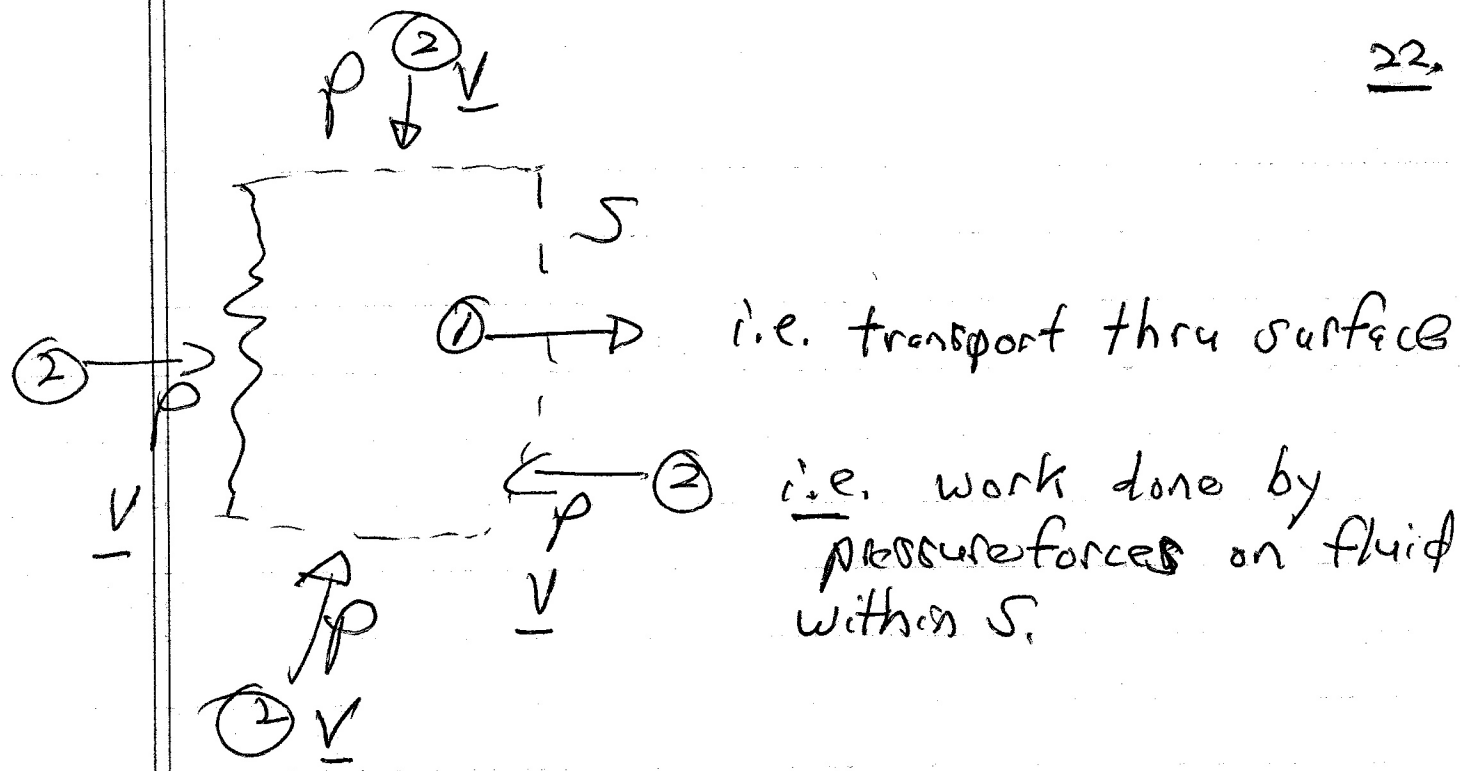 22.
p ② V
S
① i.e. transport thru surface
② p
p ② i.e. work done by
V V pressure forces on fluid
p within S.
② V